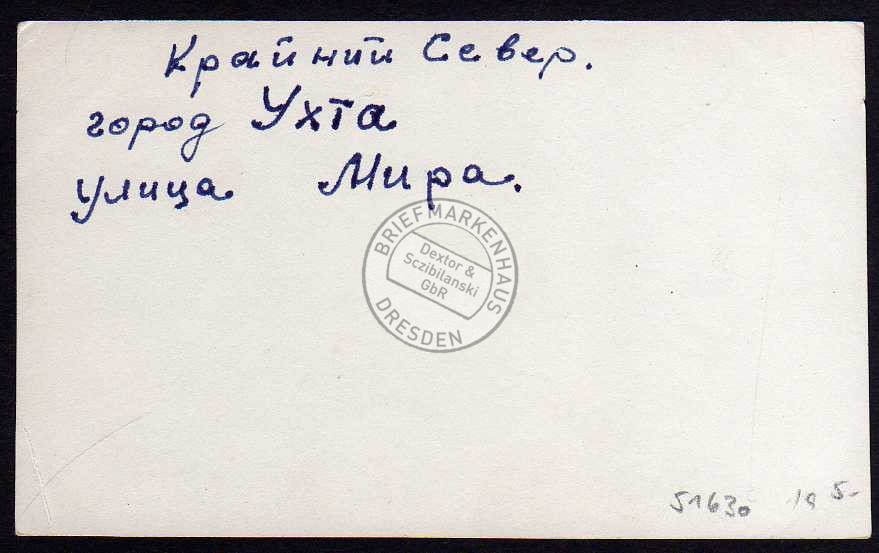 Крайний Север.
город Ухта
улица Мира.
BRIEFMARKENHAUS
Dextor &
Sczibilanski
GbR
DRESDEN
51630 5-